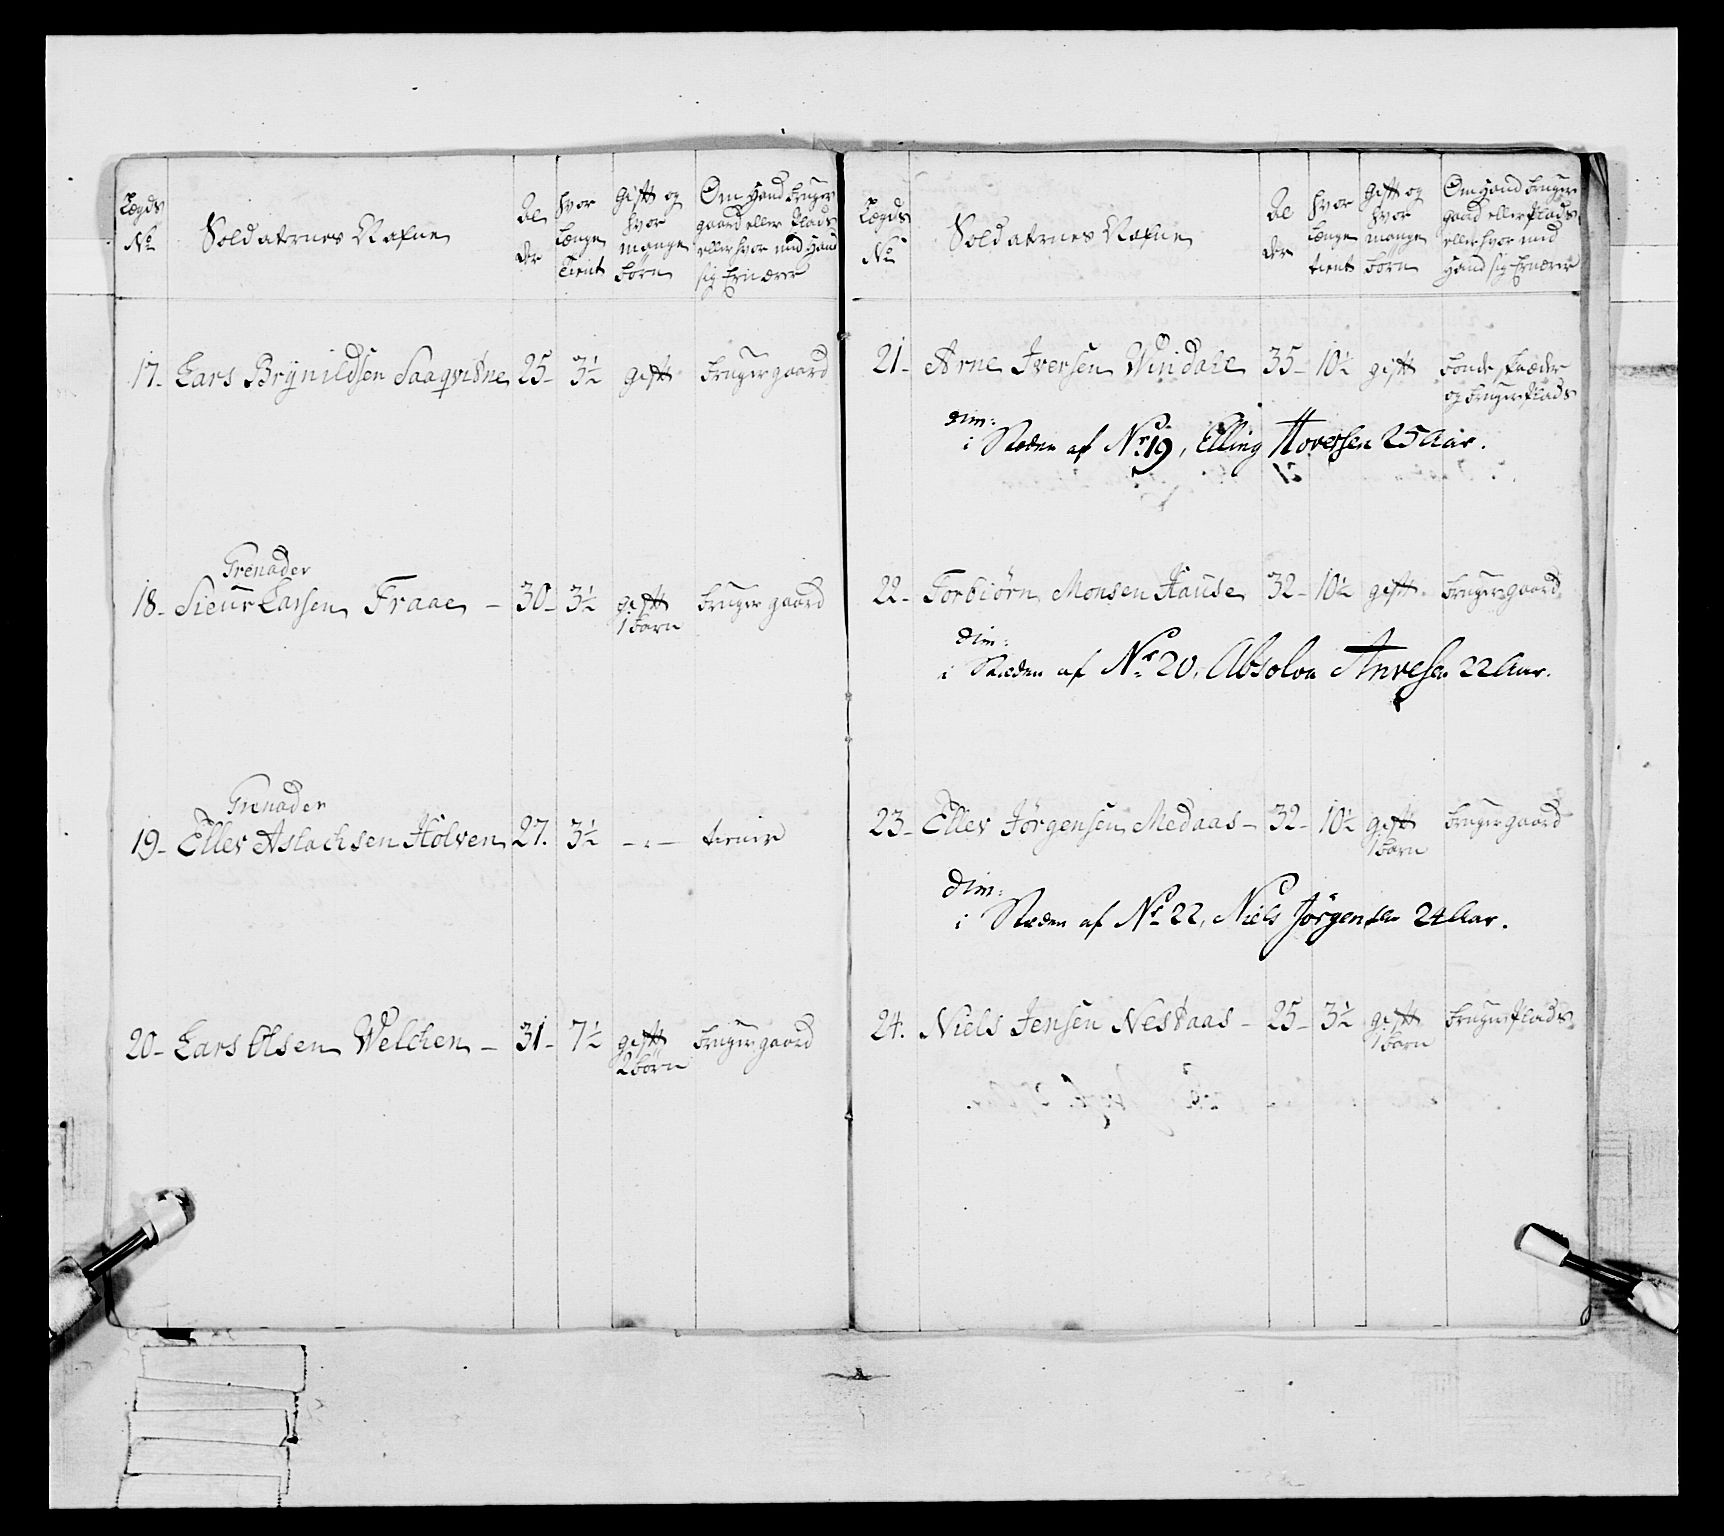 Lægds No | Soldaternes Nafne | Al der | hvor længe tient | gift og hvor mange børn | Om Hand bruger gaard eller Plads eller hvor med Hand sig Ernærer
17- Lars Brÿnildsen Saaqvitne 25- 3½ gift bruger gaard
Grenader
18- Sieur Larsen Fraae - 30- 3½ gift bruger gaard
1 barn
Grenader
19- Ellev Aslachsen Holven 27. 3½ -.- tienir
20- Lars Olsen Welchen - 31- 7½ gift bruger gaard
2 børn
Lægds No | Soldaternes Nafne | Al der | hvor længe tient | gift og hvor mange børn | Om Hand bruger gaad eller Plads eller hvor med Hand sig Ernærer
21- Arne Iversen Windahl 35- 10½ gift bonde skræder
og bruger Plads
dim:
i Stæden af Nr 19, Elling Hoversen 25 Aar.
22- Torbiörn Monsen Hause 32- 10½ gift bruger gaard
dim:
i Stæden af Nr 20, Absolon Arvesen 22 Aar.
23- Ellev Jörgensen Medaas- 32- 10½ gift bruger gaard
1 barn
dim:
i Stæden af Nr 22, Niels Jörgensen 24 Aar.
24. Niels Jensen Nestaas - 25- 3½ gift bruger Plads
1 barn